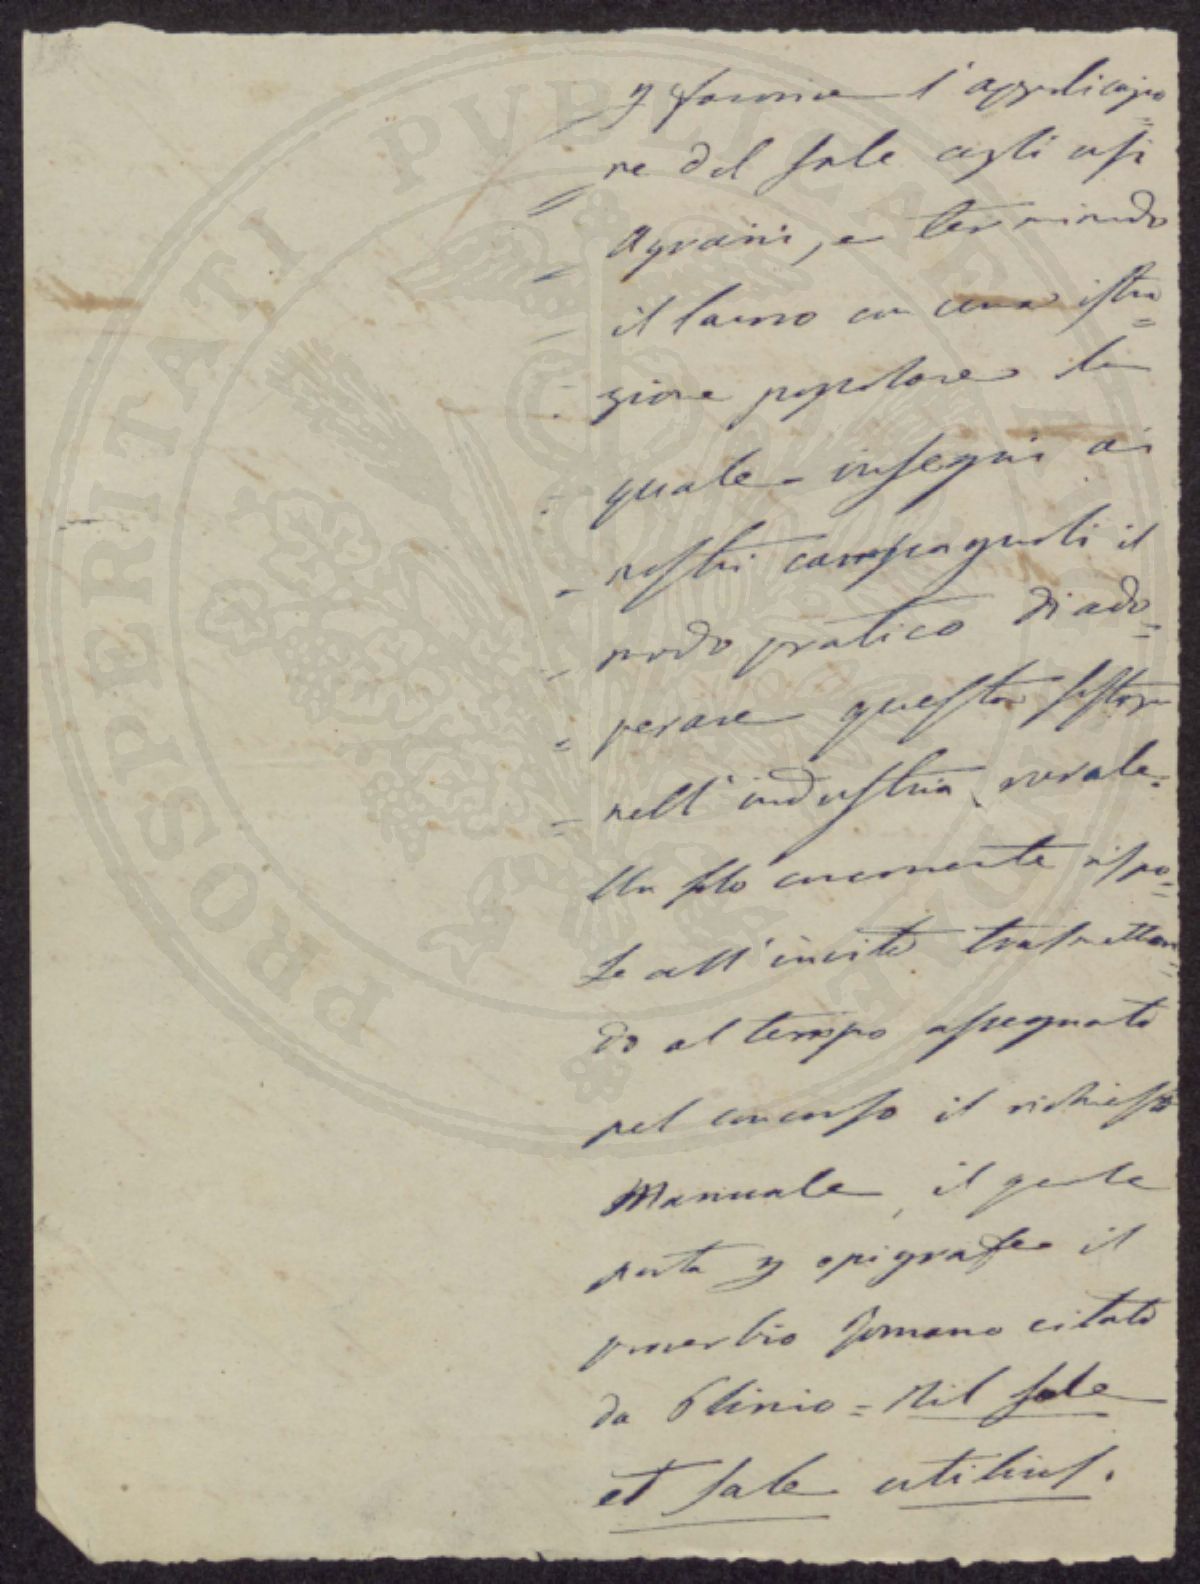 PROSPERITATI PVBLICAE AVGENDAE
p favorire l'applicazio=
ne del sale agli usi
Agrarii, e terminando
il lavoro con una istru=
zione popolare la
quale insegni ai
nostri campagnuoli il
modo pratico di ado=
perare questa sostanza
nell'industria rurale.
Un solo concorrente rispo=
se all'invito trasmetten=
do al tempo assegnato
pel concorso il richiesto
Manuale, il quale
porta p epigrafe il
proverbio Romano citato
da Plinio = Nil sole
et sale utilius.